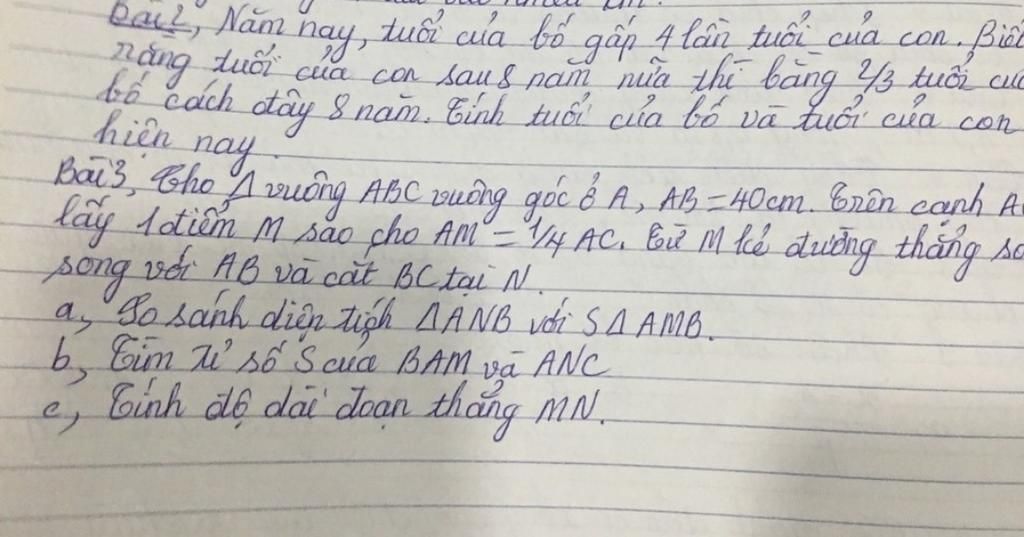 Bài 2, Năm nay, tuổi của bố gấp 4 lần tuổi của con. Biết
rằng tuổi của con sau 8 năm nữa thì bằng 2/3 tuổi của
bố cách đây 8 năm. Tính tuổi của bố và tuổi của con
hiện nay.
Bài 3, Cho Δ vuông ABC vuông góc ở A, AB = 40cm. Trên cạnh A
lấy 1 điểm M sao cho AM = 1/4 AC. Từ M kẻ đường thẳng so
song với AB và cắt BC tại N.
a, So sánh diện tích ΔANB với SΔAMB.
b, Tìm tỉ số S của BAM và ANC
c, Tính độ dài đoạn thẳng MN.